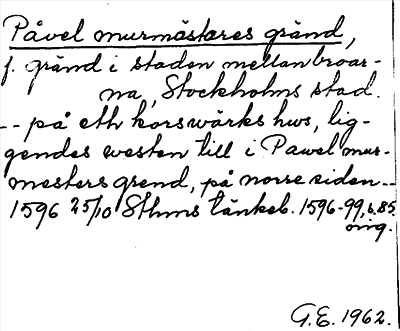 Påvel murmästares gränd,
f. gränd i staden mellan broar-
na, Stockholms stad.
-- på eth korswärks hws, lig-
gendes westen till i Pawel mur-
mesters grend, på norre siden --
1596 25/10 Sthms tänkeb. 1596-99, s. 85.
orig.
G.E. 1962.